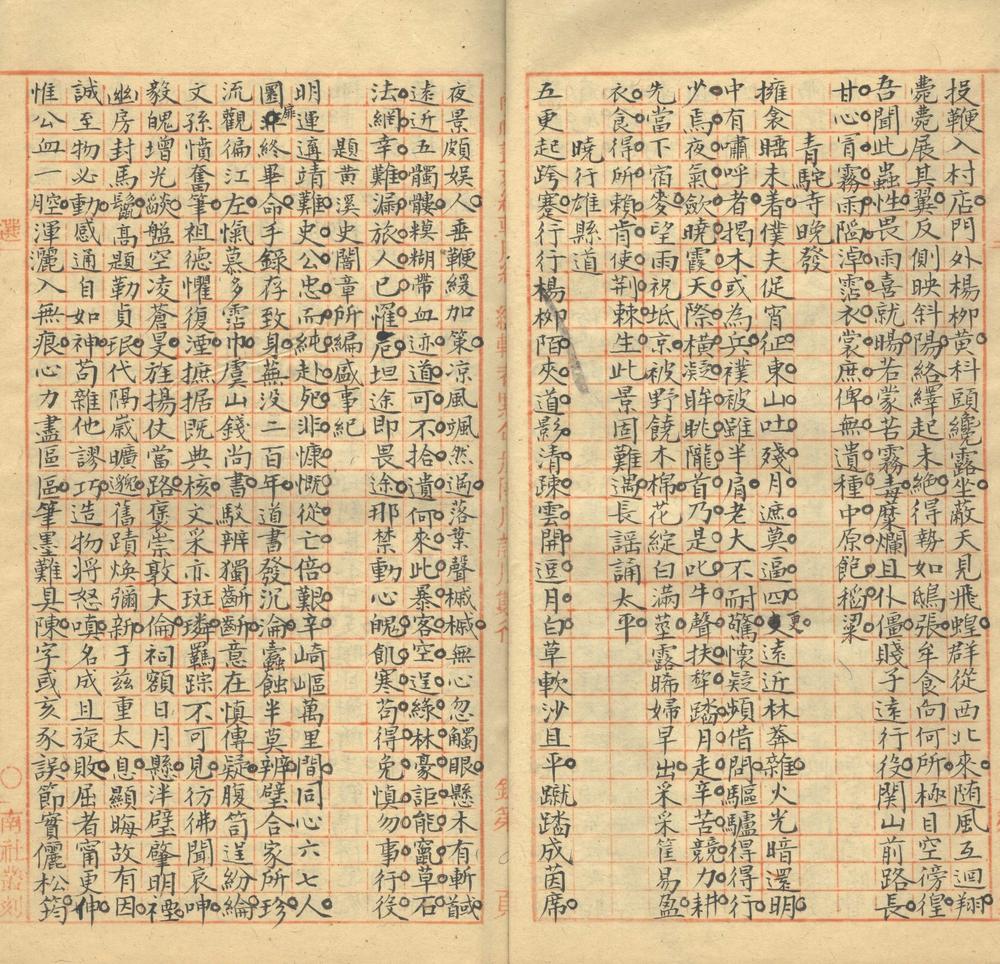 投鞭入村店門外楊柳黃科頭纔露坐蔽天見飛蝗群從西北來随風互迴翔
薨薨展其翼反側映斜陽絡繹起未絕得勢如鴟張牟食向何所極目空傍徨
吾聞此蟲性畏雨喜就暘若蒙苦霧毒糜爛且仆僵賤子遠行役関山前路長
甘心冐霧雨隂淖霑衣裳庶俾無遺種中原飽稻粱
青駝寺晚發
擁衾睡未着僕夫促宵征東山吐殘月遮莫逼四更遠近林莽雜火光暗還明
中有嘯呼者揭木或為兵襆被雖半肩老大不耐驚懷疑頻借問驅驢得得行
少焉夜氣歛曉霞天際橫凝眸眺隴首乃是叱牛聲扶犂踏月走辛苦競力耕
先當下宿麥望雨祝坻京被野饒木棉花綻白滿莖露晞婦早出采采筐易盈
衣食得所賴肯使荆棘生此景固難遇長謡誦太平
曉行雄縣道
五更起跨蹇行行楊栁陌夾道影清踈雲開逗月白草軟沙且平蹴踏成茵席
夜景頗娱人垂鞭緩加策凉風颯然過落葉聲槭槭無心忽觸眼懸木有斬馘
遠近五髑髏糢糊帶血迹道可不拾遺何來此暴客空逞綠林豪詎能竄草石
法網幸難漏旅人已罹厄坦途即畏途那禁動心魄飢寒苟得免慎勿事行役
題黄溪史闇章所編盛事紀
明運遘靖難史公忠而純赴死非慷慨從亡倍艱辛崎嶇萬里間同心六七人
圜扉終畢命手録存致身蕪没二百年道書發沉淪蠹蝕半莫辨壁合家所珍
流觀徧江左愾慕多霑巾虞山錢尚書駁辨獨齗齗意在慎傳疑腹笥逞紛綸
文孫憤奮筆祖德懼復湮摭据既典核文采亦斑璘羈踪不可見彷彿聞哀呻
毅魄增光燄盤空凌蒼旻旌揚仗當路褒崇敦大倫祠額日月懸泮壁肇明禋
幽房封馬鬣髙題勒貞珉代隔嵗曠邈舊蹟煥彌新于兹重太息顯晦故有因
誠至物必動感通自如神苟雜他謬巧造物将怒嗔名成且旋敗屈者甯更伸
惟公血一腔渾灑入無痕心力盡區區筆墨難具陳字或亥豕誤節實儷松筠
南社叢刻